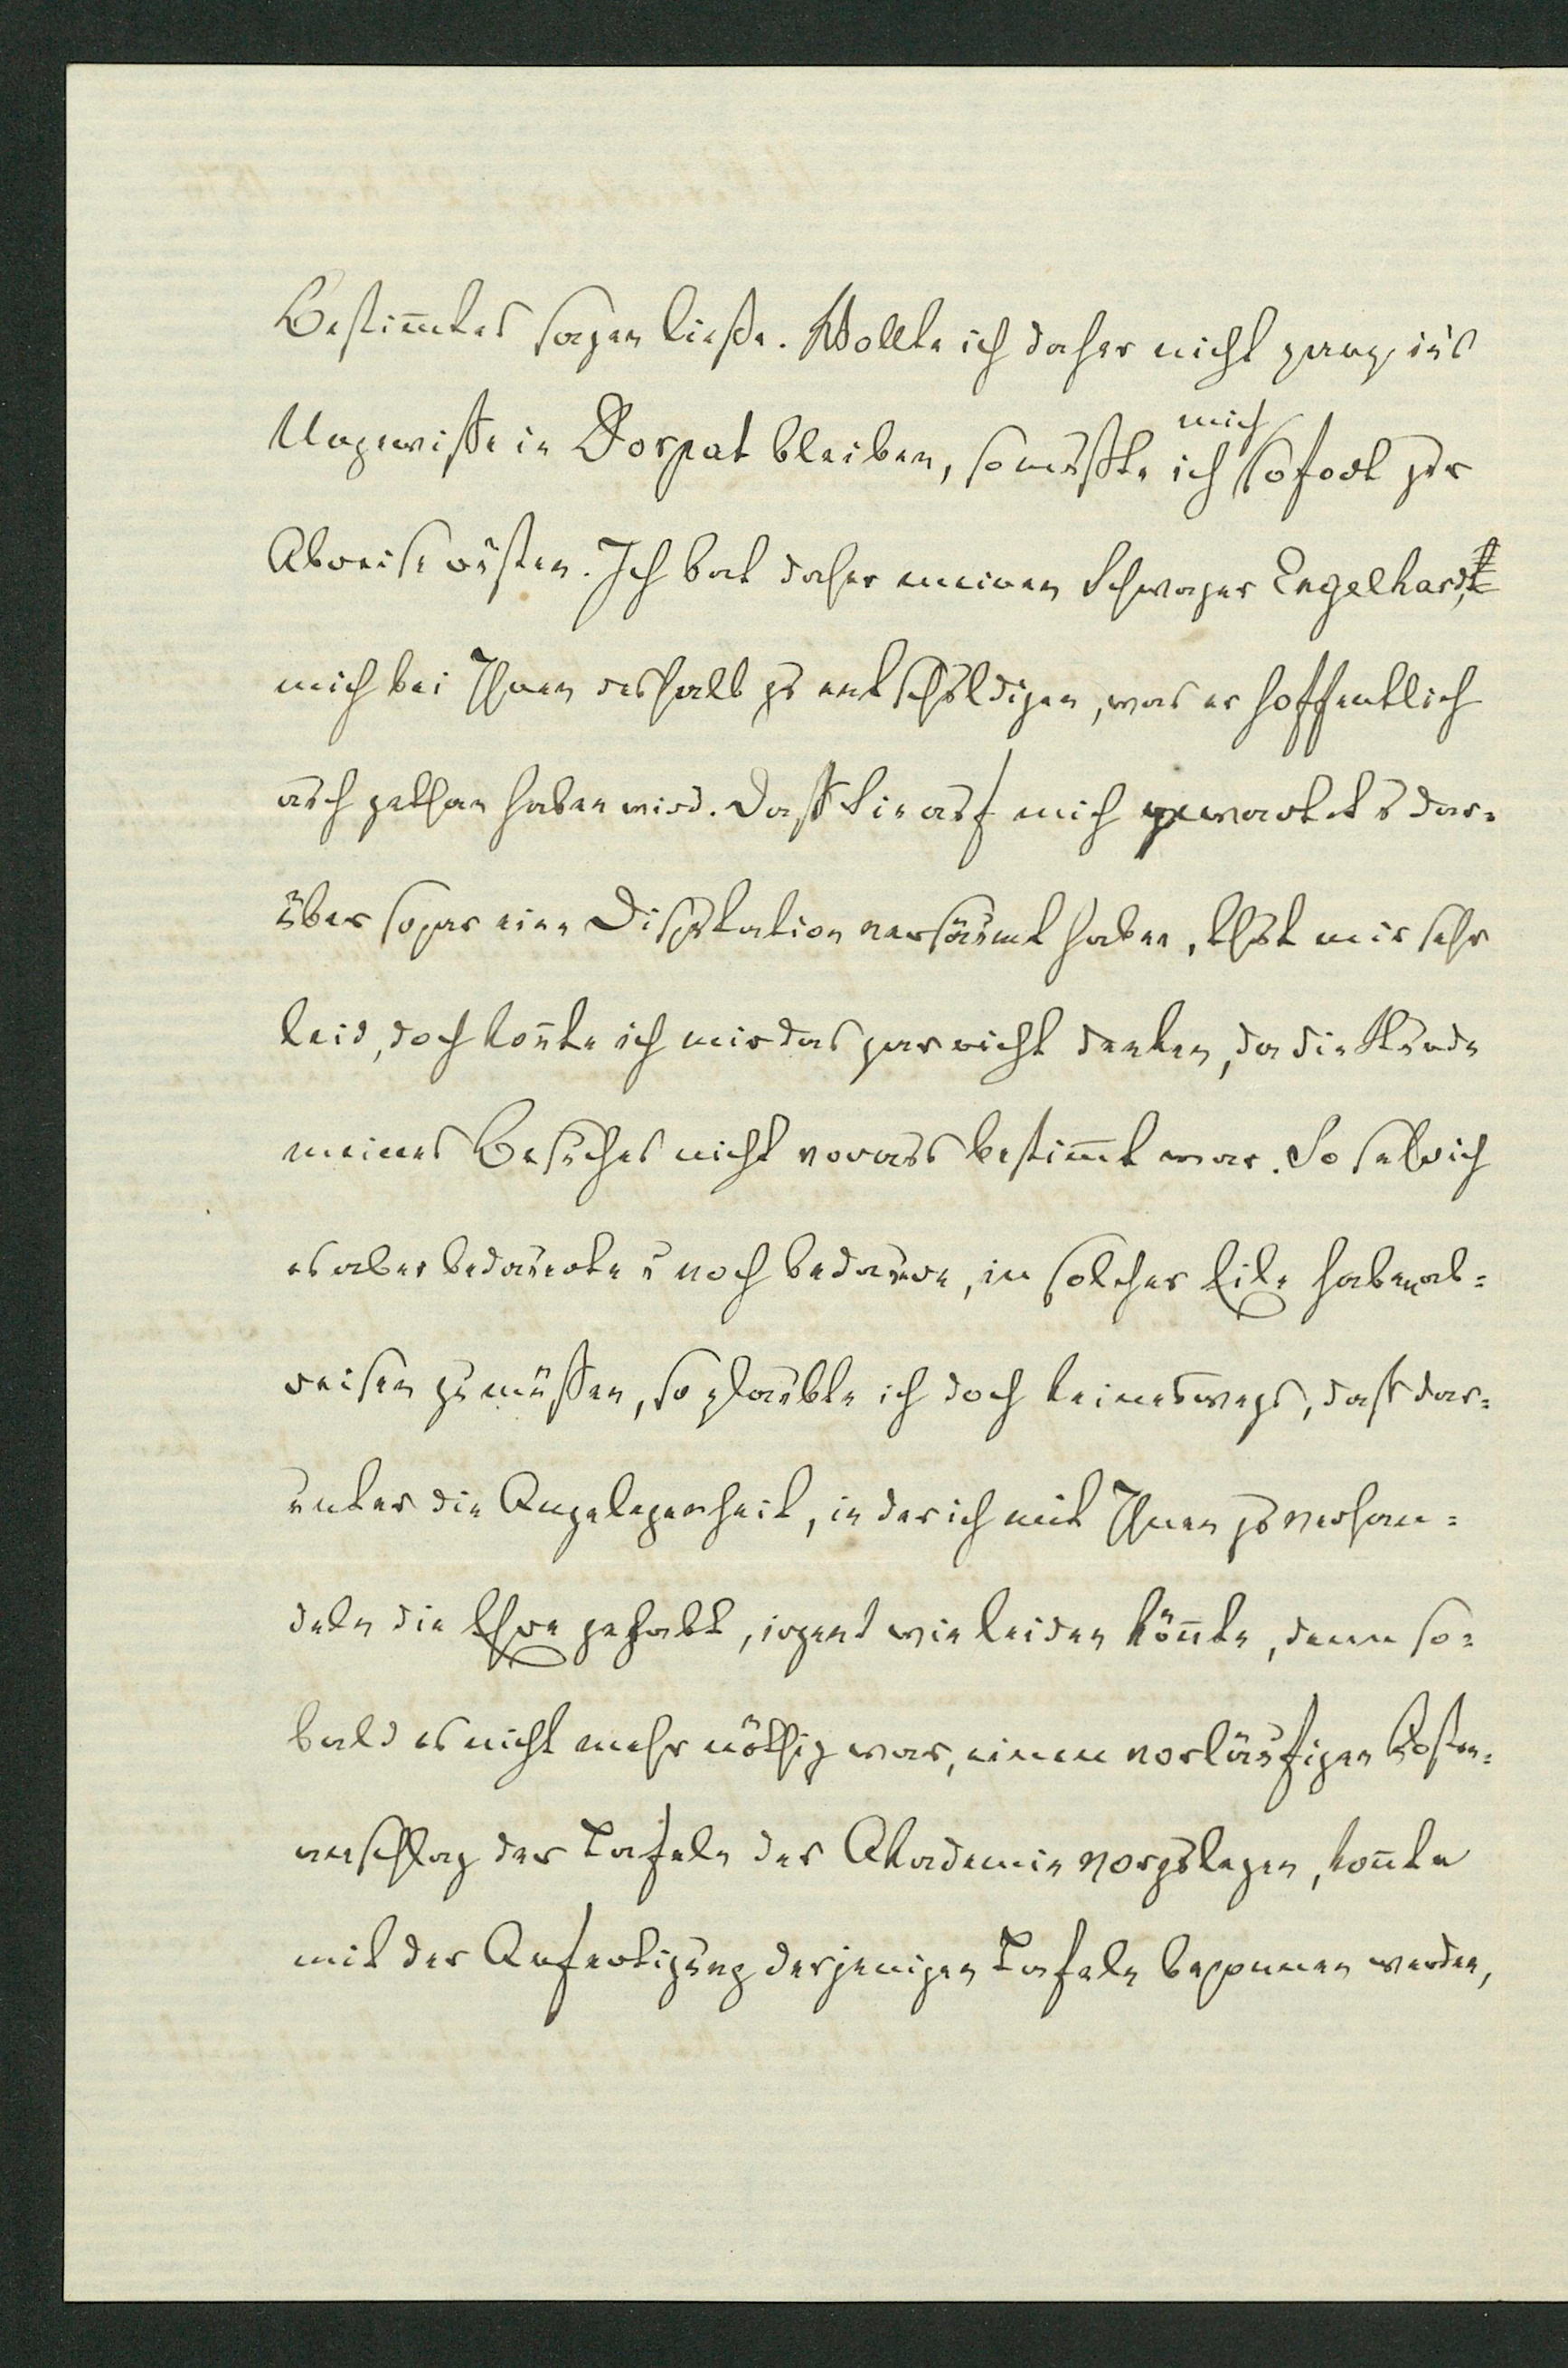 Bestim̅tes sagen ließe. Wollte ich daher nicht ganz ins
Ungewisse in Dorpat bleiben, so mußte ich mich sofort zur
Abreise rüsten. Ich bat daher meinen Schwager Engelhardt,
mich bei Ihnen deshalb zu entschuldigen, was er hoffentlich
auch gethan haben wird. Daß Sie auf mich gewartet u dar=
über sogar eine Disputation versäumt haben, thut mir sehr
leid, doch kon̅te ich mir das gar nicht denken, da die Stunde
meines Besuches nicht voraus bestim̅t war. So sehr ich
es aber bedauerte u noch bedaure, in solcher Eile haben ab=
reisen zu müssen, so glaubte ich doch keineswegs, daß dar=
unter die Angelegenheit, in der ich mit Ihnen zu verhan=
deln die Ehre gehabt, irgend wie leiden kön̅te, denn so=
bald es nicht mehr nöthig war, einen vorläufigen Kosten=
anschlag der Tafeln der Akademie vorzulegen, kon̅te
mit der Anfertigung derjenigen Tafeln begonnen werden,